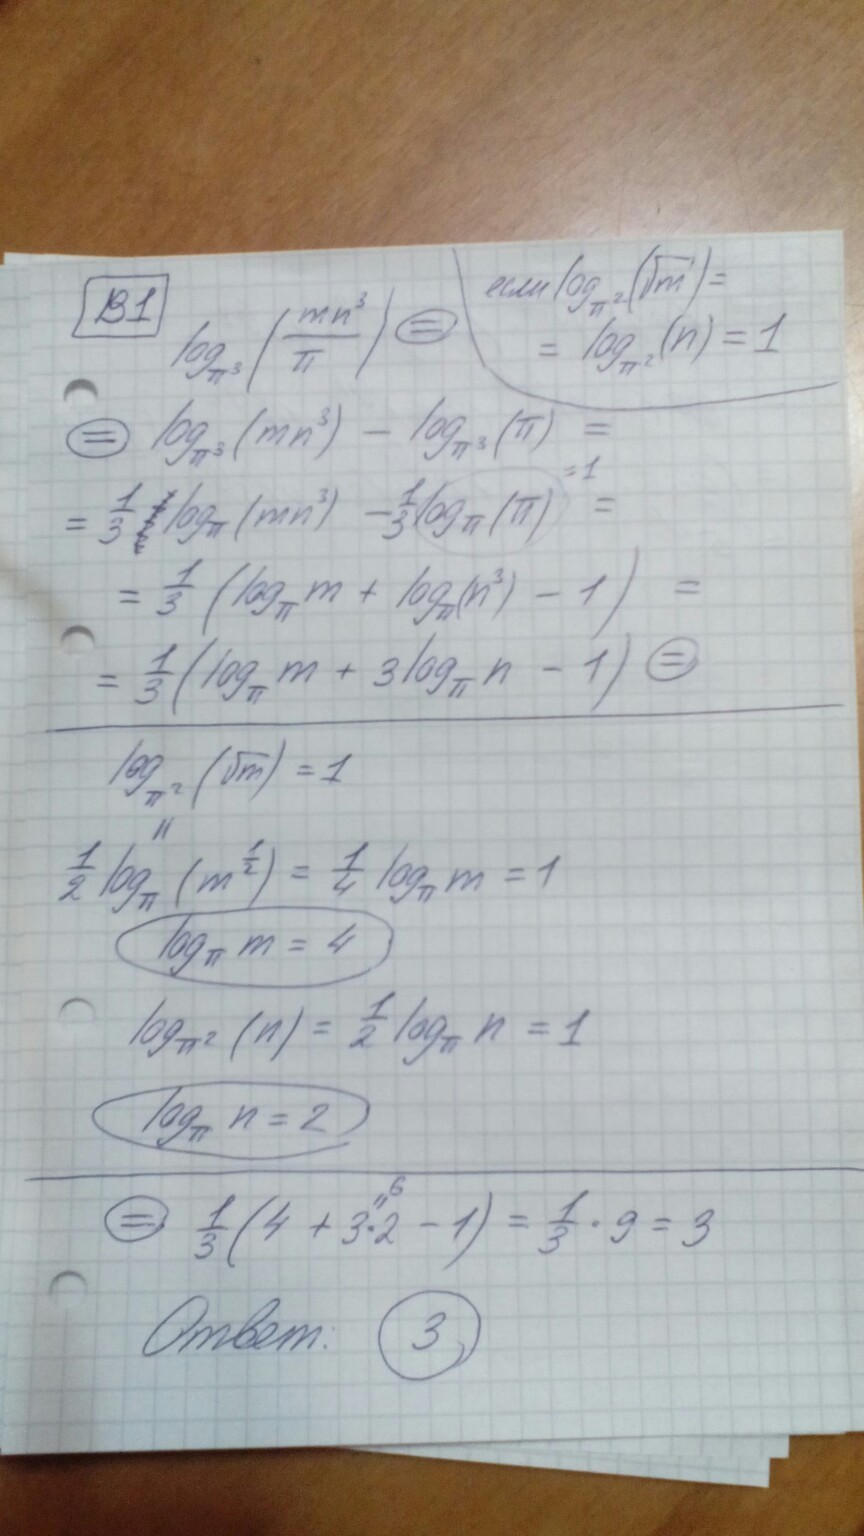 B1
если log_{π²}(√m) =
= log_{π²}(n) = 1
log_{π³}(mn³/π) ⊜
⊜ log_{π³}(mn³) − log_{π³}(π) =
= 1/3 log_π(mn³) − 1/3 log_π(π) =
=1
= 1/3 (log_π m + log_π(n³) − 1) =
= 1/3 (log_π m + 3log_π n − 1) ⊜
log_{π²}(√m) = 1
||
1/2 log_π(m^{1/2}) = 1/4 log_π m = 1
log_π m = 4
log_{π²}(n) = 1/2 log_π n = 1
log_π n = 2
⊜ 1/3 (4 + 3·2 − 1) = 1/3 · 9 = 3
"6
Ответ: 3